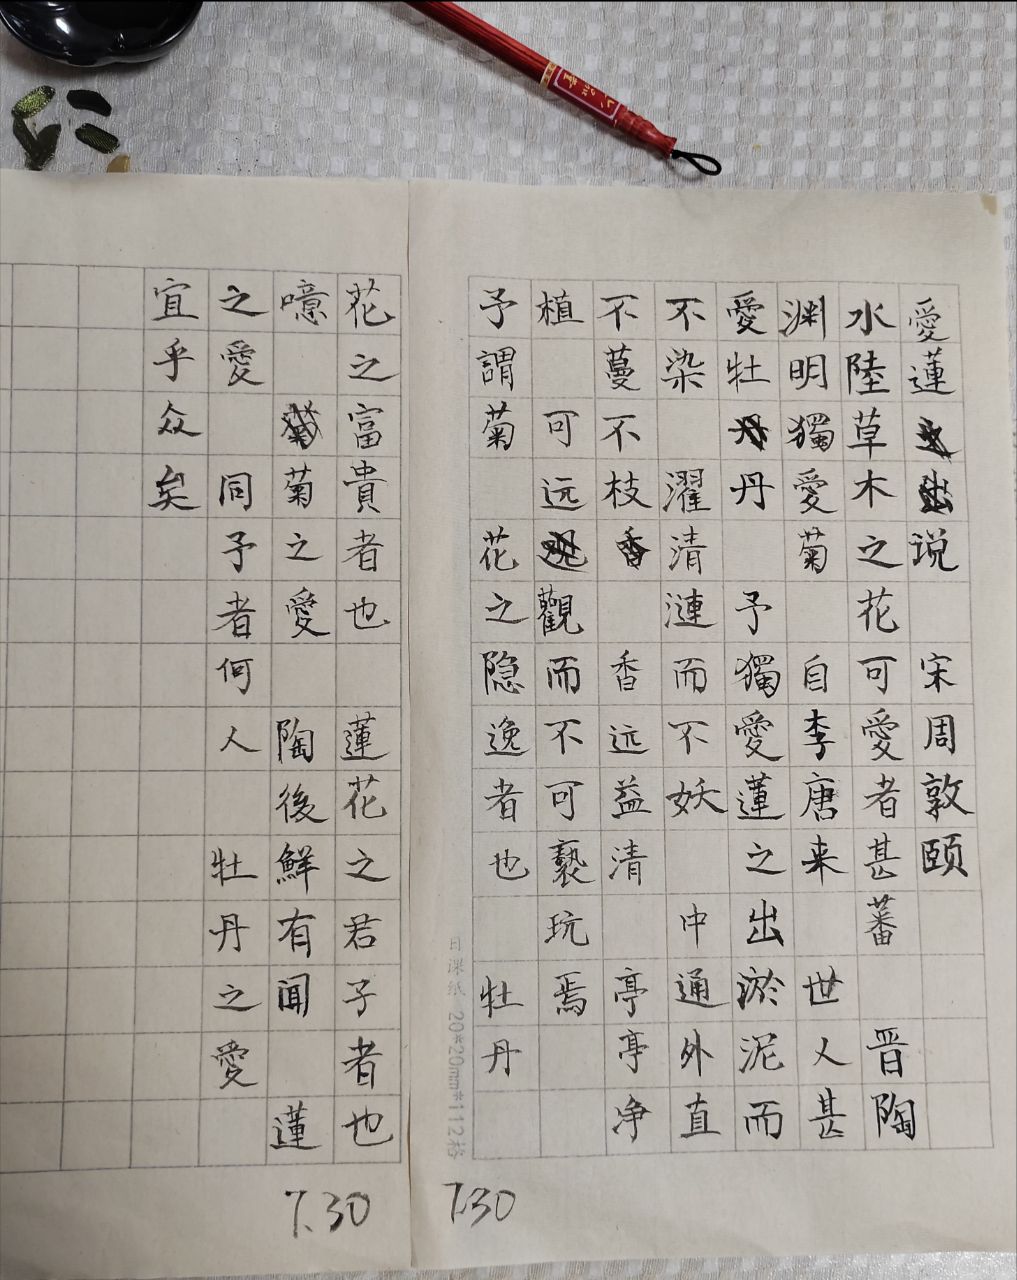 愛蓮说 宋周敦颐
水陸草木之花可愛者甚蕃 晋陶
渊明獨愛菊 自李唐来 世人甚
愛牡丹 予獨愛蓮之出淤泥而
不染 濯清漣而不妖 中通外直
不蔓不枝 香远益清 亭亭净
植 可远觀而不可褻玩焉
予謂菊 花之隐逸者也 牡丹
花之富貴者也 蓮花之君子者也
噫 菊之愛 陶後鮮有聞 蓮
之愛 同予者何人 牡丹之愛
宜乎众矣
日课纸 20*20mm*112格
7.30
7.30